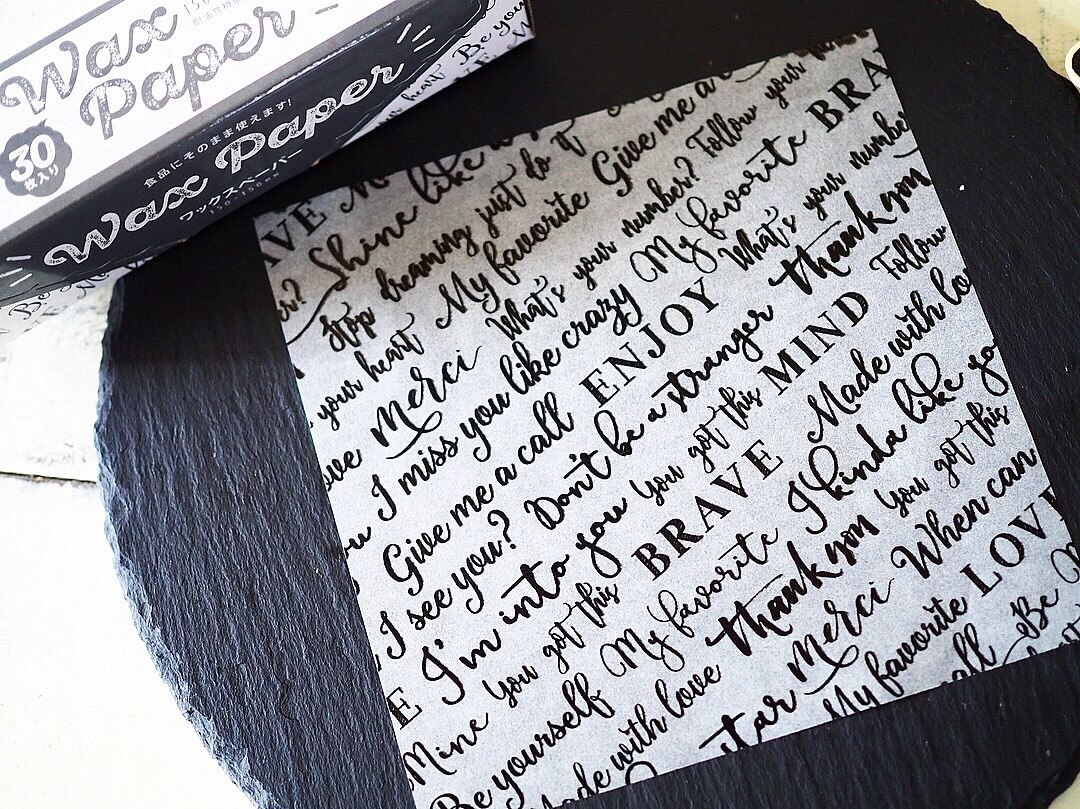 Wax
Paper
30
枚入り
食品にそのまま使えます!
Wax Paper
ワックスペーパー
150×150mm
heart Be you
Shine like
Stop dreaming just do it
your heart My favorite Give me a
Merci What's your number? Follow your
I miss you like crazy My favorite BRA
Give me a call ENJOY What's your number
I see you? Don't be a stranger thank you
E I'm into you you got this MIND Follow
Mine you got this BRAVE Made with lo
Be yourself My favorite I kinda like yo
Made with love thank you you got this
star Merci When can
My favorite LOVE
call Be